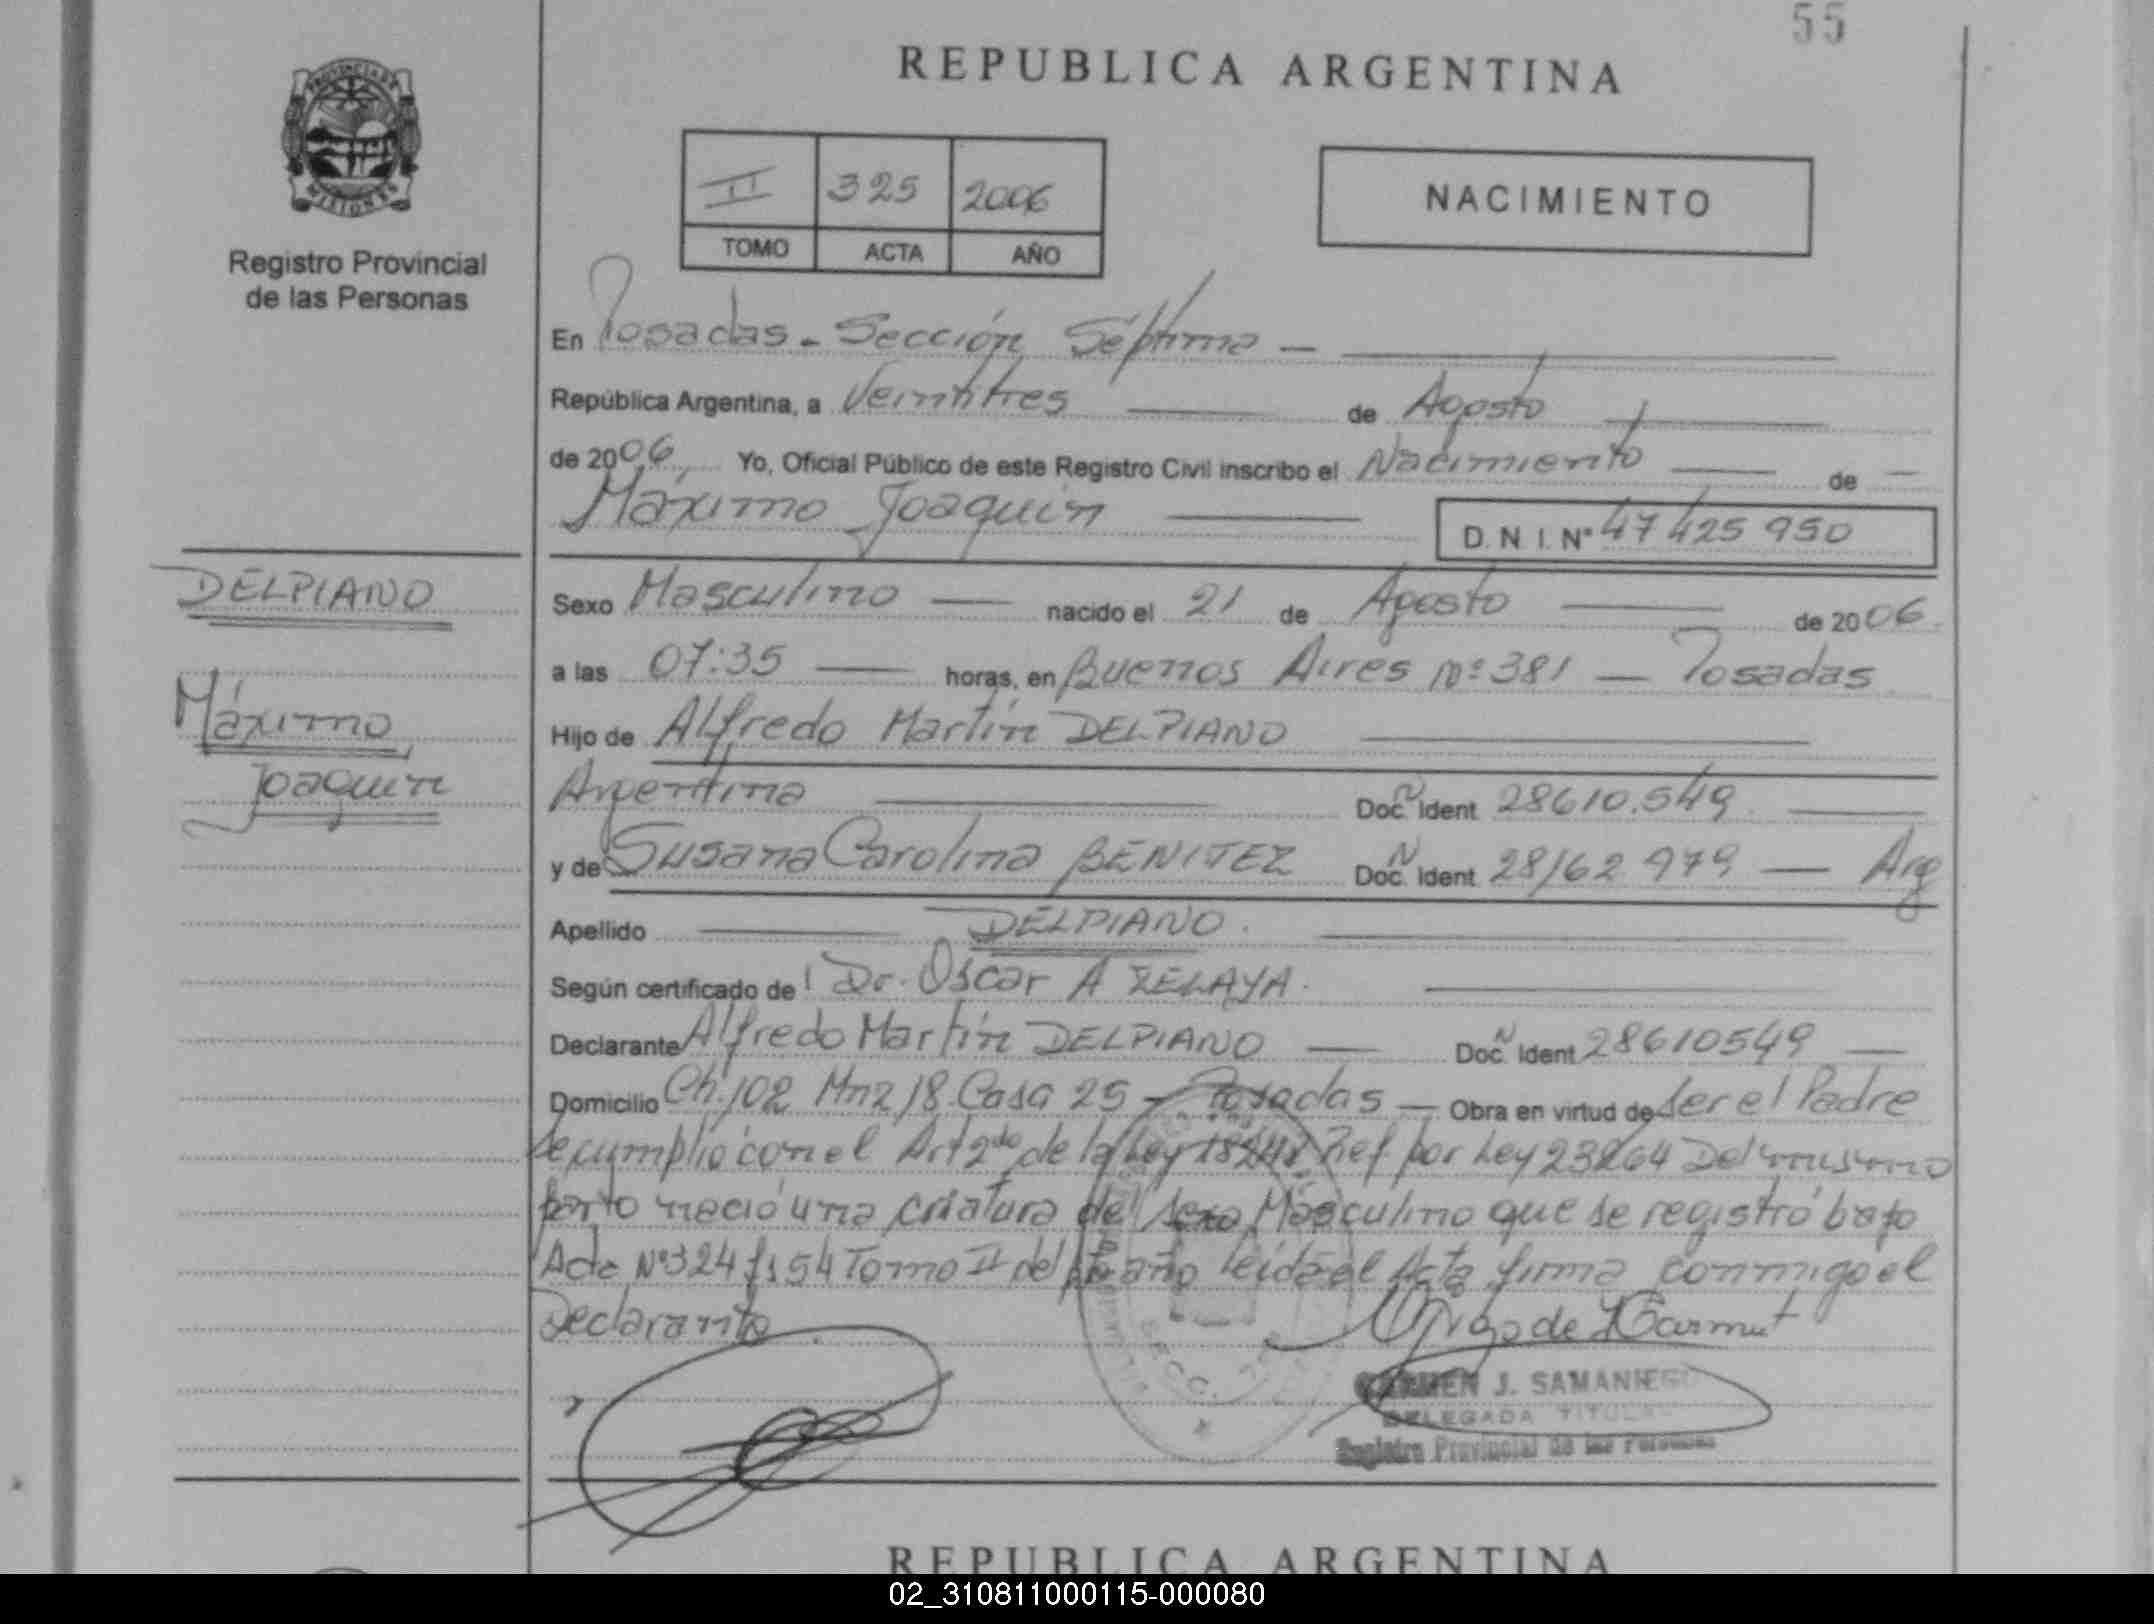 55
REPUBLICA ARGENTINA
PROVINCIA DE
MISIONES
Registro Provincial
de las Personas
II 325 2006
TOMO ACTA AÑO
NACIMIENTO
En Posadas - Sección Séptima —
República Argentina, a Veintitres — de Agosto —
de 2006, Yo, Oficial Público de este Registro Civil inscribo el Nacimiento — de —
Máximo Joaquín — D. N. I. Nº 47 425 950
DELPIANO
Máximo
Joaquín
Sexo Masculino — nacido el 21 de Agosto — de 2006.
a las 07:35 — horas, en Buenos Aires Nº 381 — Posadas
Hijo de Alfredo Martín DELPIANO —
Argentina — Doc. N Ident 28610.549 —
y de Susana Carolina BENITEZ Doc. N Ident. 28162 979 — Arg
Apellido — DELPIANO. —
Según certificado de Dr. Oscar A ZELAYA. —
Declarante Alfredo Martín DELPIANO — Doc. N Ident 28610549 —
Domicilio Ch. 102 Mnz 18 Casa 25 - Posadas — Obra en virtud de Ser el Padre
Se cumplió con el Art 2do de la Ley 18248 Ref. por Ley 23264 Del mismo
parto nació una criatura del Sexo Masculino que se registró bajo
Acta Nº 324 fs 54 Tomo II del año Leida el Acta firma conmigo el
Declarante.
SECC. 7
CARMEN J. SAMANIEGO
DELEGADA TITULAR
Registro Provincial de las Personas
REPUBLICA ARGENTINA
02_310811000115-000080